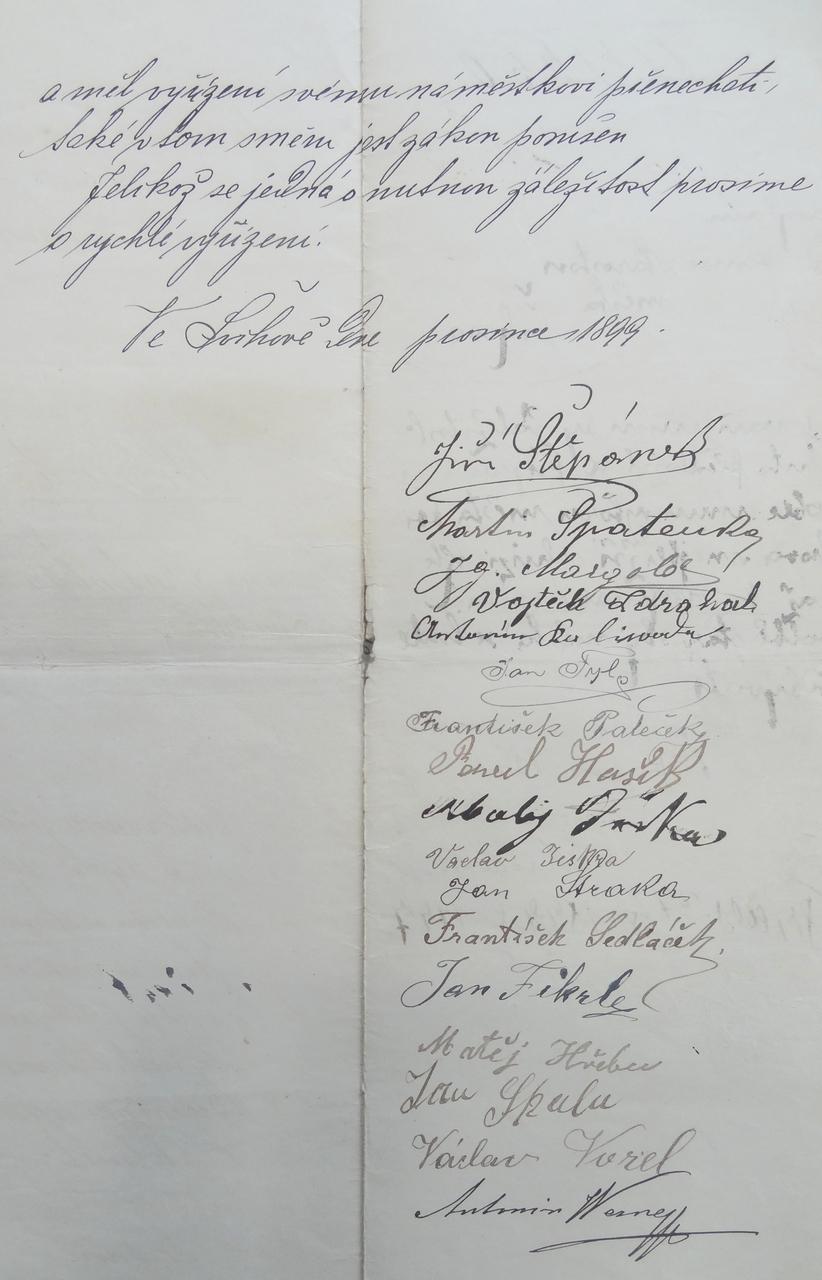 a měl vyřízení svému náměstkovi přenechati,
také v tom směru jest zákon porušen
Jelikož se jedná o nutnou záležitost prosíme
o rychlé vyřízení.
Ve Švihově Dne prosince 1899.
Jiří Štěpánek
Martin Spatenka
Jg. Margolé
Vojtěch Zdrahal
Antonín Kaliwoda
Jan Tyl
František Paleček
Pavel Hašek
Matěj
Václav Jiskra
Jan Straka
František Sedláček
Jan Fikrle
Matěj Hřebec
Jan Spala
Václav Vorel
Antonin Werner